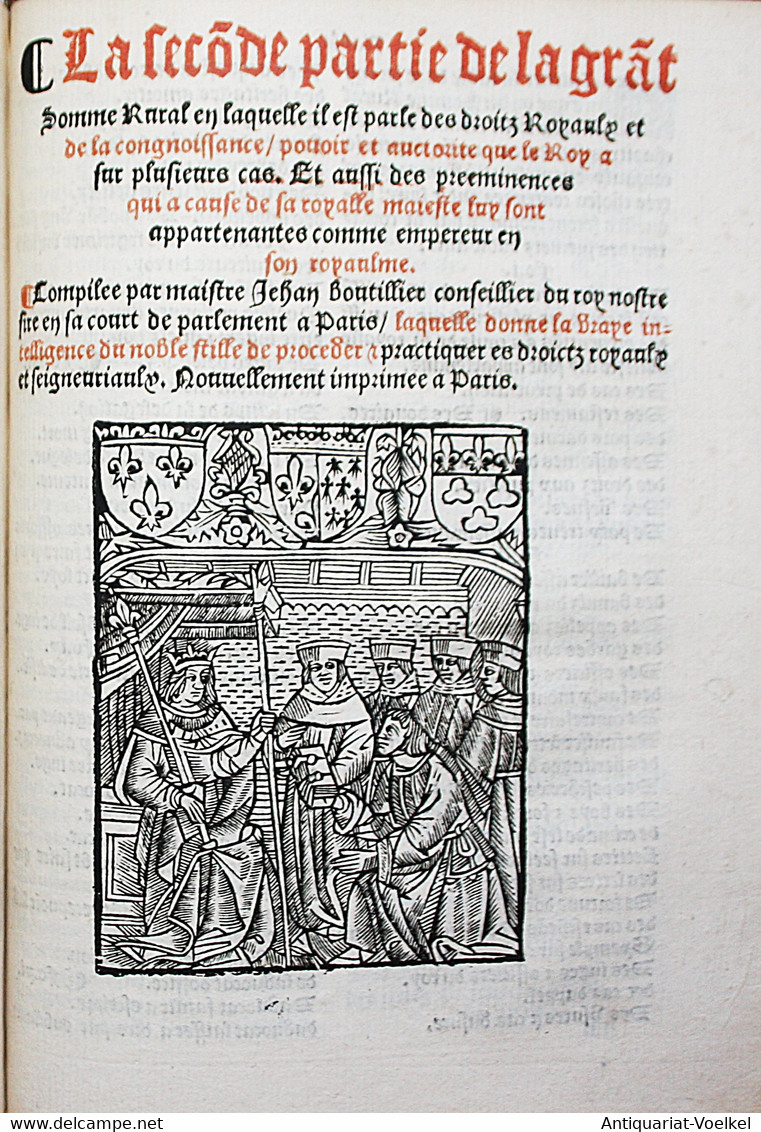 ¶ La secõde partie de la grãt
Somme Rural en laquelle il est parle des droitz Royaulx et
de la congnoissance / pouoir et auctorite que le Roy a
sur plusieurs cas. Et aussi des preeminences
qui a cause de sa royalle maieste luy sont
appartenantes comme empereur en
son royaulme.
¶ Compilee par maistre Jehan boutillier conseillier du roy nostre
sire en sa court de parlement a Paris / laquelle donne la vraye in-
telligence du noble stille de proceder ⁊ practiquer es droictz royaulx
et seigneuriaulx. Nouuellement imprimee a Paris.
Antiquariat-Voelkel